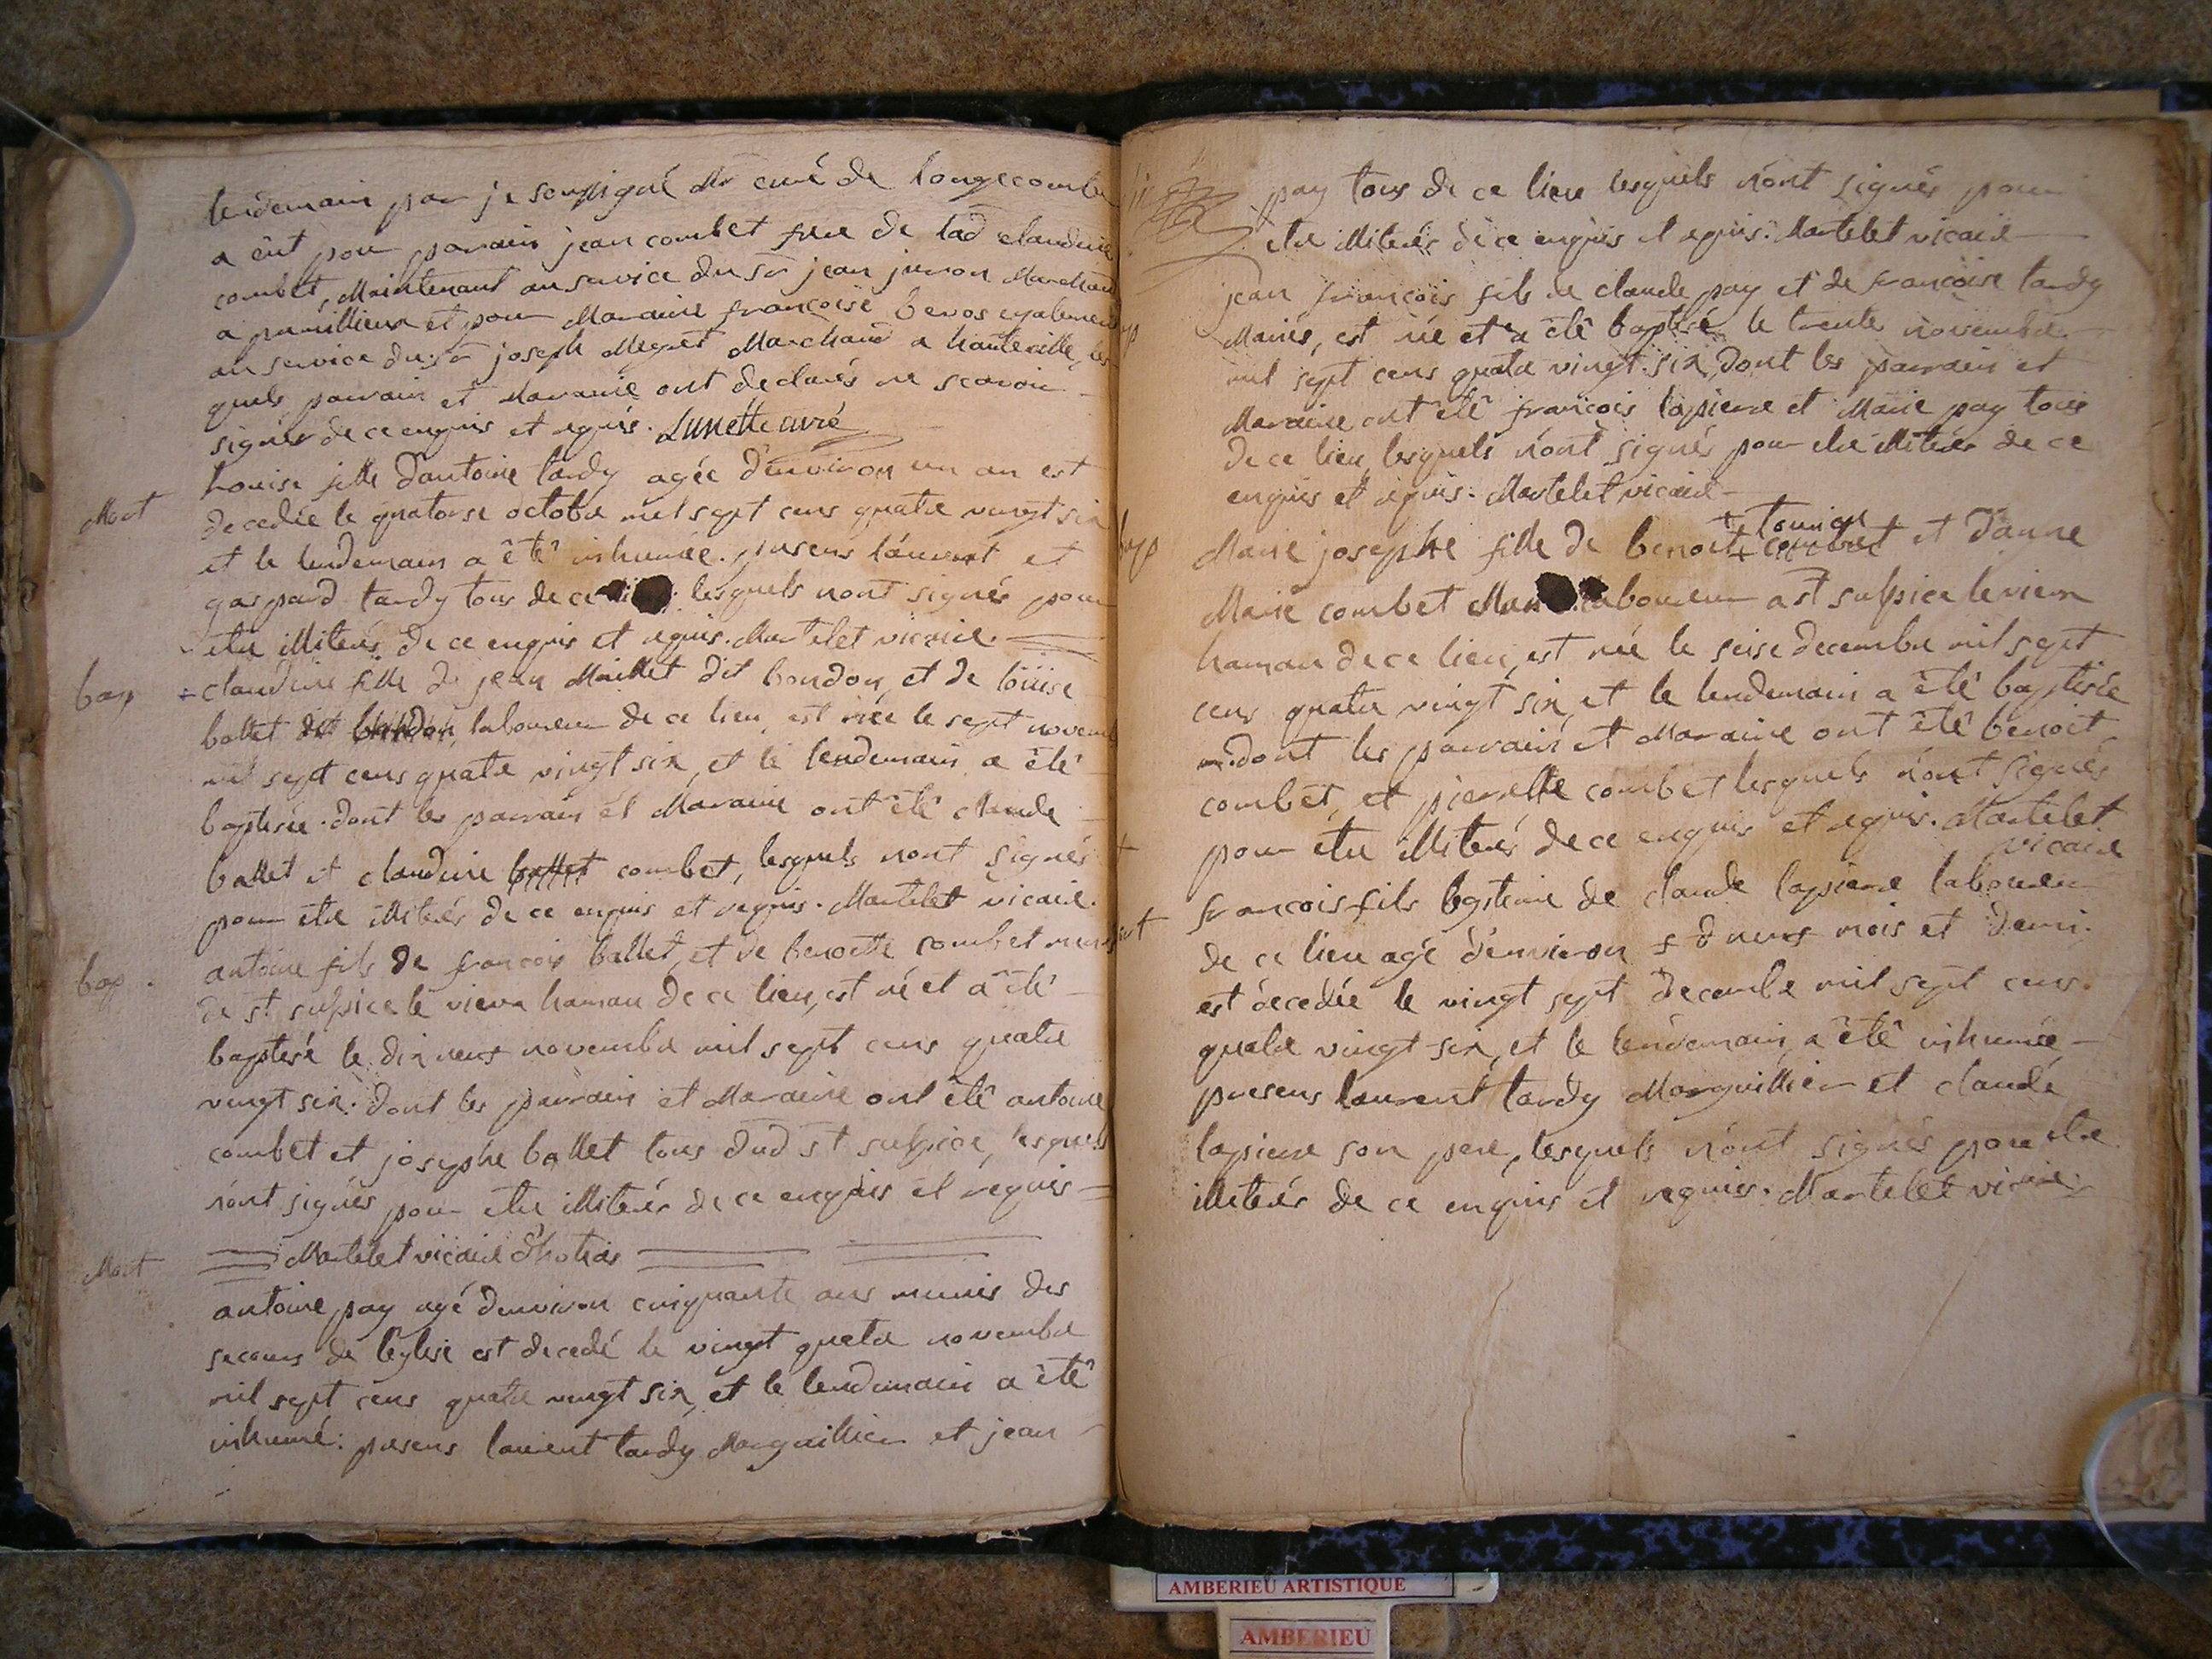 lendemain par je soussigné Mr curé de longecombe
a eut pour parain jean combet frere de lad claudine
combet, Maintenant au service du sr jean juron Marchand
a prmillieux et pour Maraine françoise bevos egalement
au service du sr joseph Megret Marchand a hauteville, les
quels parrain et Maraine ont declarés ne scavoir
signér de ce enquis et requis. Lunette curé
Mort
Louise fille d'antoine tardy agée d'environ un an est
decedée le quatorse octobre mil sept cens quatre vingt six
et le lendemain a êté inhumée. presens laurent et
gaspard tardy tous de ce lesquels nont signés pour
etre illiterés de ce enquis et requis. Martelet vicaire.
bap
+ claudine fille de jean Maillet dit bondon, et de loüise
ballet dit bondon, laboureur de ce lieu, est née le sept novemb
mil sept cens quatre vingt six, et le lendemain a êté
baptisée. dont les parrain et Maraine ont êté claude
ballet et claudine ballet combet, lesquels nont signés
pour etre illiterés de ce enquis et requis. Martelet vicaire.
bap.
antoine fils de francois ballet, et de benoitte combet
de st sulpice le vieux hamau de ce lieu, est né et a êté
baptisé le dix neuf novembre mil sept cens quatre
vingt six. dont les parrain et Maraine ont êté antoine
combet et josephe ballet tous dud st sulpice, lesquels
n'ont signés pour etre illiterés de ce enquis et requis
Martelet vicaire d'hotias
Mort
antoine pay agé denviron cinquante ans munis des
secours de l'eglise est decedé le vingt quatre novembre
mil sept cens quatre vingt six, et le lendemain a êté
inhumé: presens laurent tardy Marguillier et jean
pay tous de ce lieu lesquels n'ont signés pour
etre illiterés de ce enquis et requis. Martelet vicaire
jean francois fils de claude pay et de francoise tardy
Mariés, est né et a êté baptisé le trente novembre
mil sept cens quatre vingt six, dont les parrain et
Maraine ont êté francois lapierre et Marie pay tous
de ce lieu, lesquels n'ont signés pour etre illiterés de ce
enquis et requis. Martelet vicaire
bap
+ tournier
Marie josephe fille de benoit + combet et d'anne
Marie combet laboureur a st sulpice le vieux
hamau de ce lieu, est née le seise decembre mil sept
cens quatre vingt six, et le lendemain a êté baptisée
dont les parrain et Maraine ont êté benoit
combet, et pierrette combet lesquels n'ont signés
pour etre illiterés de ce enquis et requis. Martelet
vicaire
francois fils legitime de claude lapierre laboureur
de ce lieu agé d'environ neuf mois et demi.
est decedée le vingt sept decembre mil sept cens
quatre vingt six, et le lendemain a êté inhumée
presens laurent tardy Marguillier et claude
lapierre son pere, lesquels n'ont signés pour etre
illiterés de ce enquis et requis. Martelet vicaire
AMBERIEU ARTISTIQUE
AMBERIEU